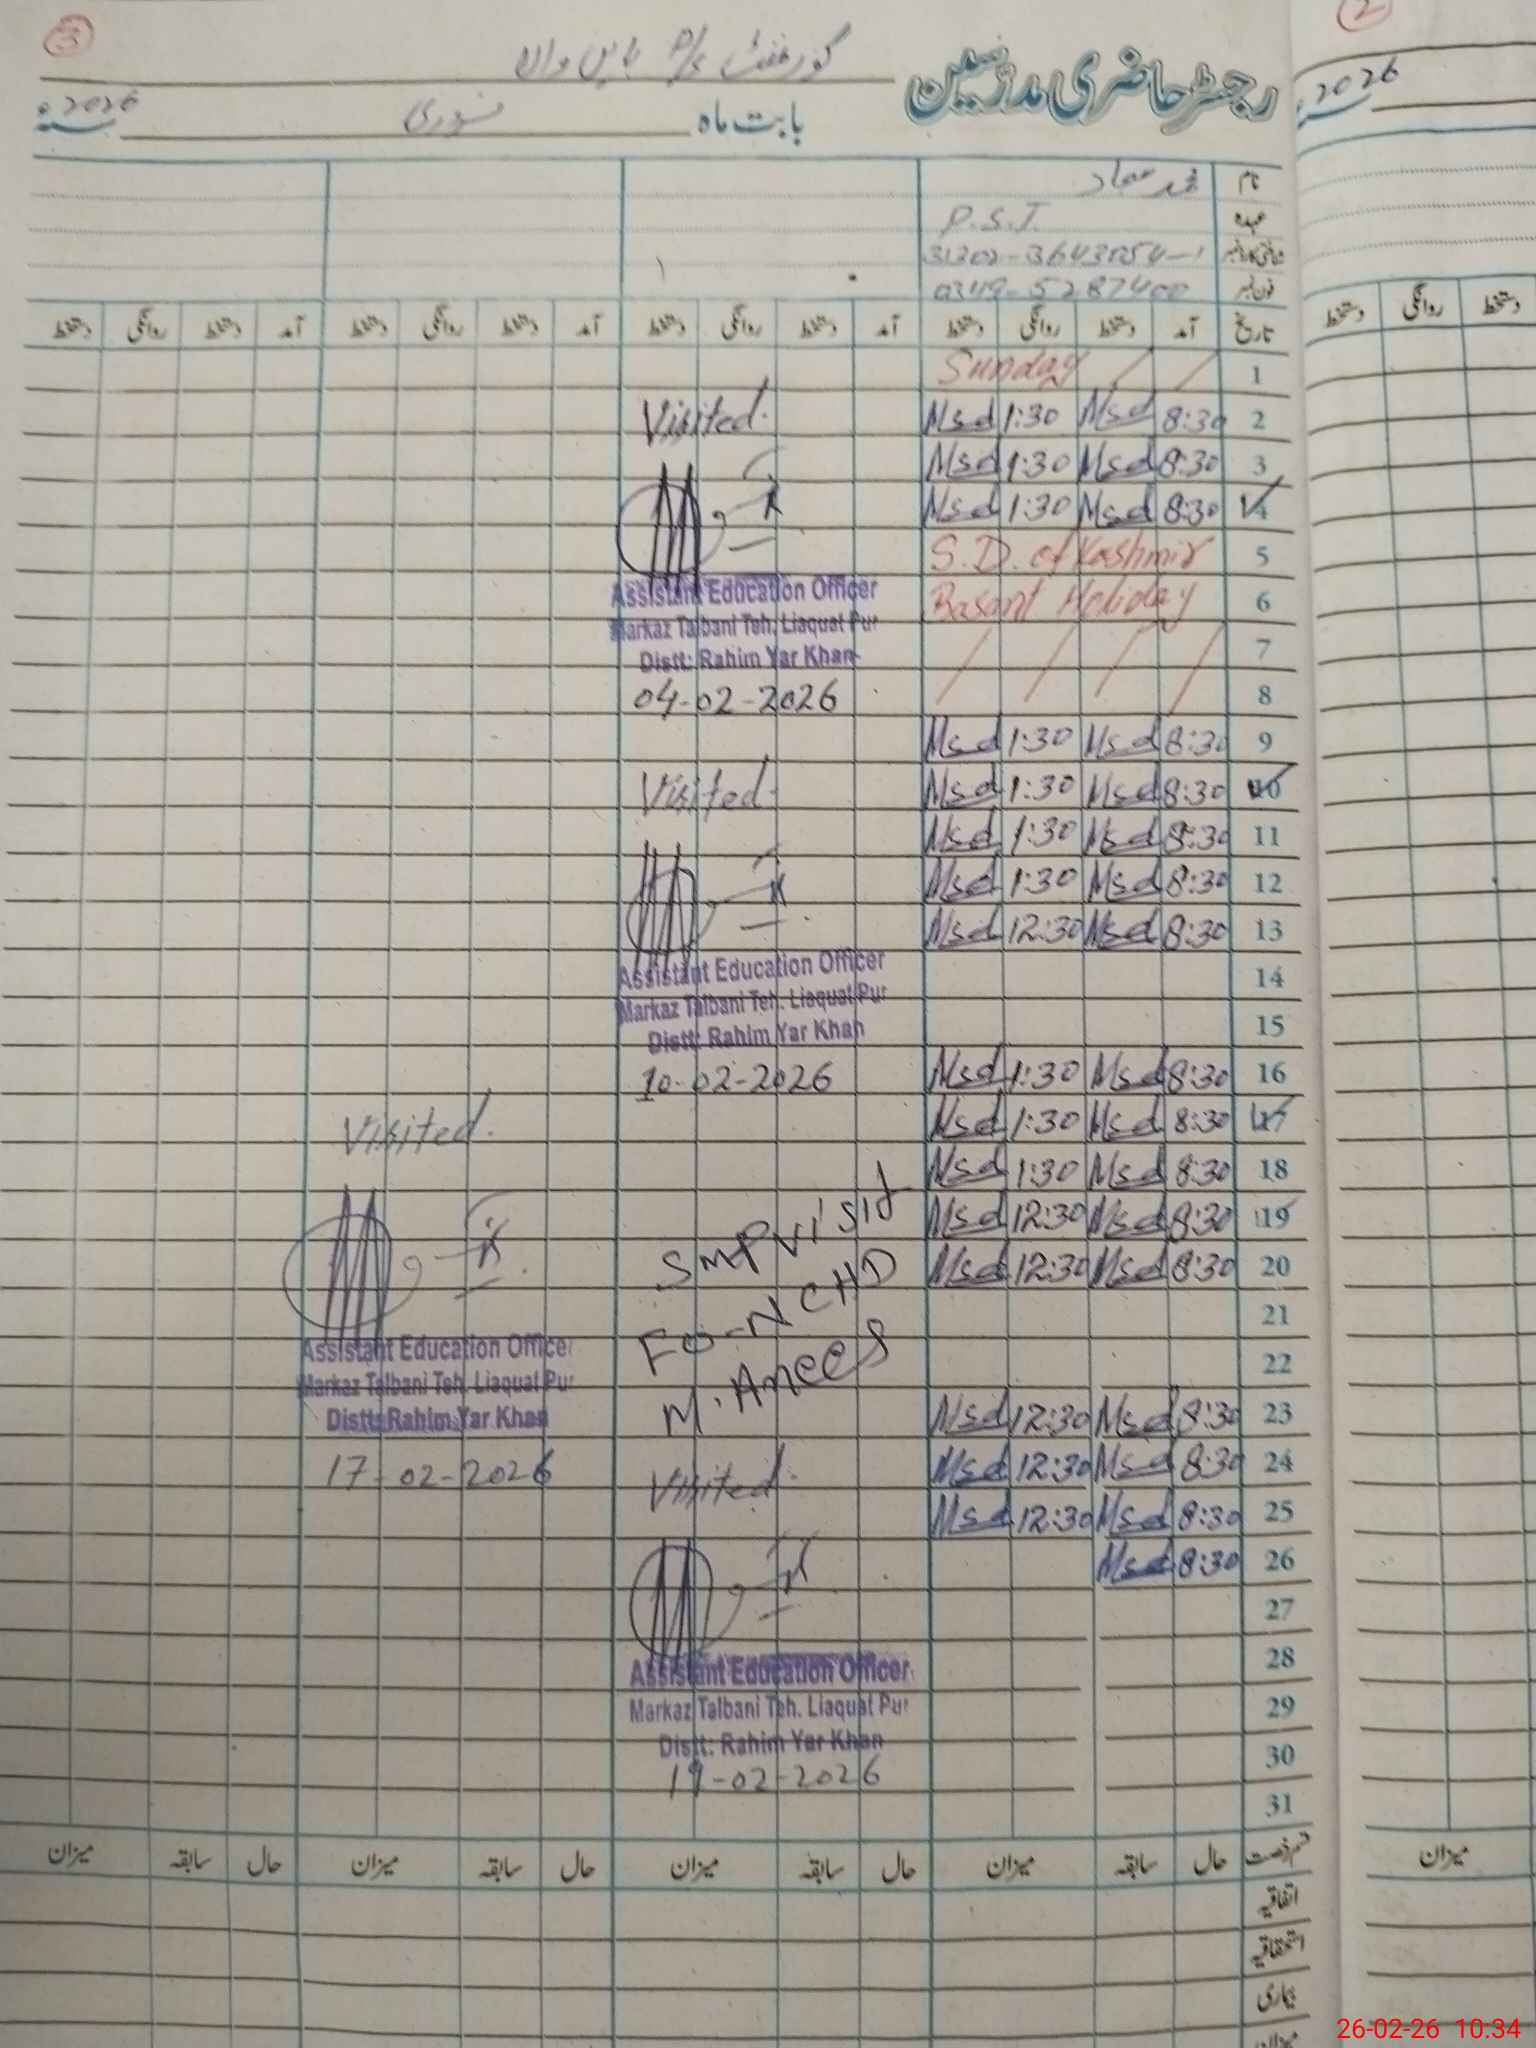 3
2
گورنمنٹ P/S
رجسٹر حاضری مدرسین
2026
بابت ماہ فروری سنہ 2026
نام محمد سجاد
عہدہ P.S.T.
شناختی کارڈ نمبر
فون نمبر 0349-5287400
تاریخ آمد دستخط روانگی دستخط آمد دستخط روانگی دستخط آمد دستخط روانگی دستخط آمد دستخط روانگی دستخط
دستخط روانگی دستخط
1 Sunday
2 8:30 Msd 1:30 Msd
3 8:30 Msd 1:30 Msd
4 8:30 Msd 1:30 Msd
5 S.D. of Kashmir
6 Basant Holiday
7
8
9 8:30 Msd 1:30 Msd
10 8:30 Msd 1:30 Msd
11 8:30 Msd 1:30 Msd
12 8:30 Msd 1:30 Msd
13 8:30 Msd 12:30 Msd
14
15
16 8:30 Msd 1:30 Msd
17 8:30 Msd 1:30 Msd
18 8:30 Msd 1:30 Msd
19 8:30 Msd 12:30 Msd
20 8:30 Msd 12:30 Msd
21
22
23 8:30 Msd 12:30 Msd
24 8:30 Msd 12:30 Msd
25 8:30 Msd 12:30 Msd
26 8:30 Msd
27
28
29
30
31
Visited.
Assistant Education Officer
Markaz Talbani Teh. Liaquat Pur
Distt: Rahim Yar Khan
04-02-2026
Visited.
Assistant Education Officer
Markaz Talbani Teh. Liaquat Pur
Distt: Rahim Yar Khan
10-02-2026
Visited.
Assistant Education Officer
Markaz Talbani Teh. Liaquat Pur
Distt: Rahim Yar Khan
17-02-2026
SMP visit
FO-NCHD
M. Anees
Visited.
Assistant Education Officer
Markaz Talbani Teh. Liaquat Pur
Distt: Rahim Yar Khan
19-02-2026
قسم رخصت حال سابقہ میزان حال سابقہ میزان حال سابقہ میزان حال سابقہ میزان
میزان
اتفاقیہ
استحقاقیہ
بیماری
میزان
26-02-26 10:34